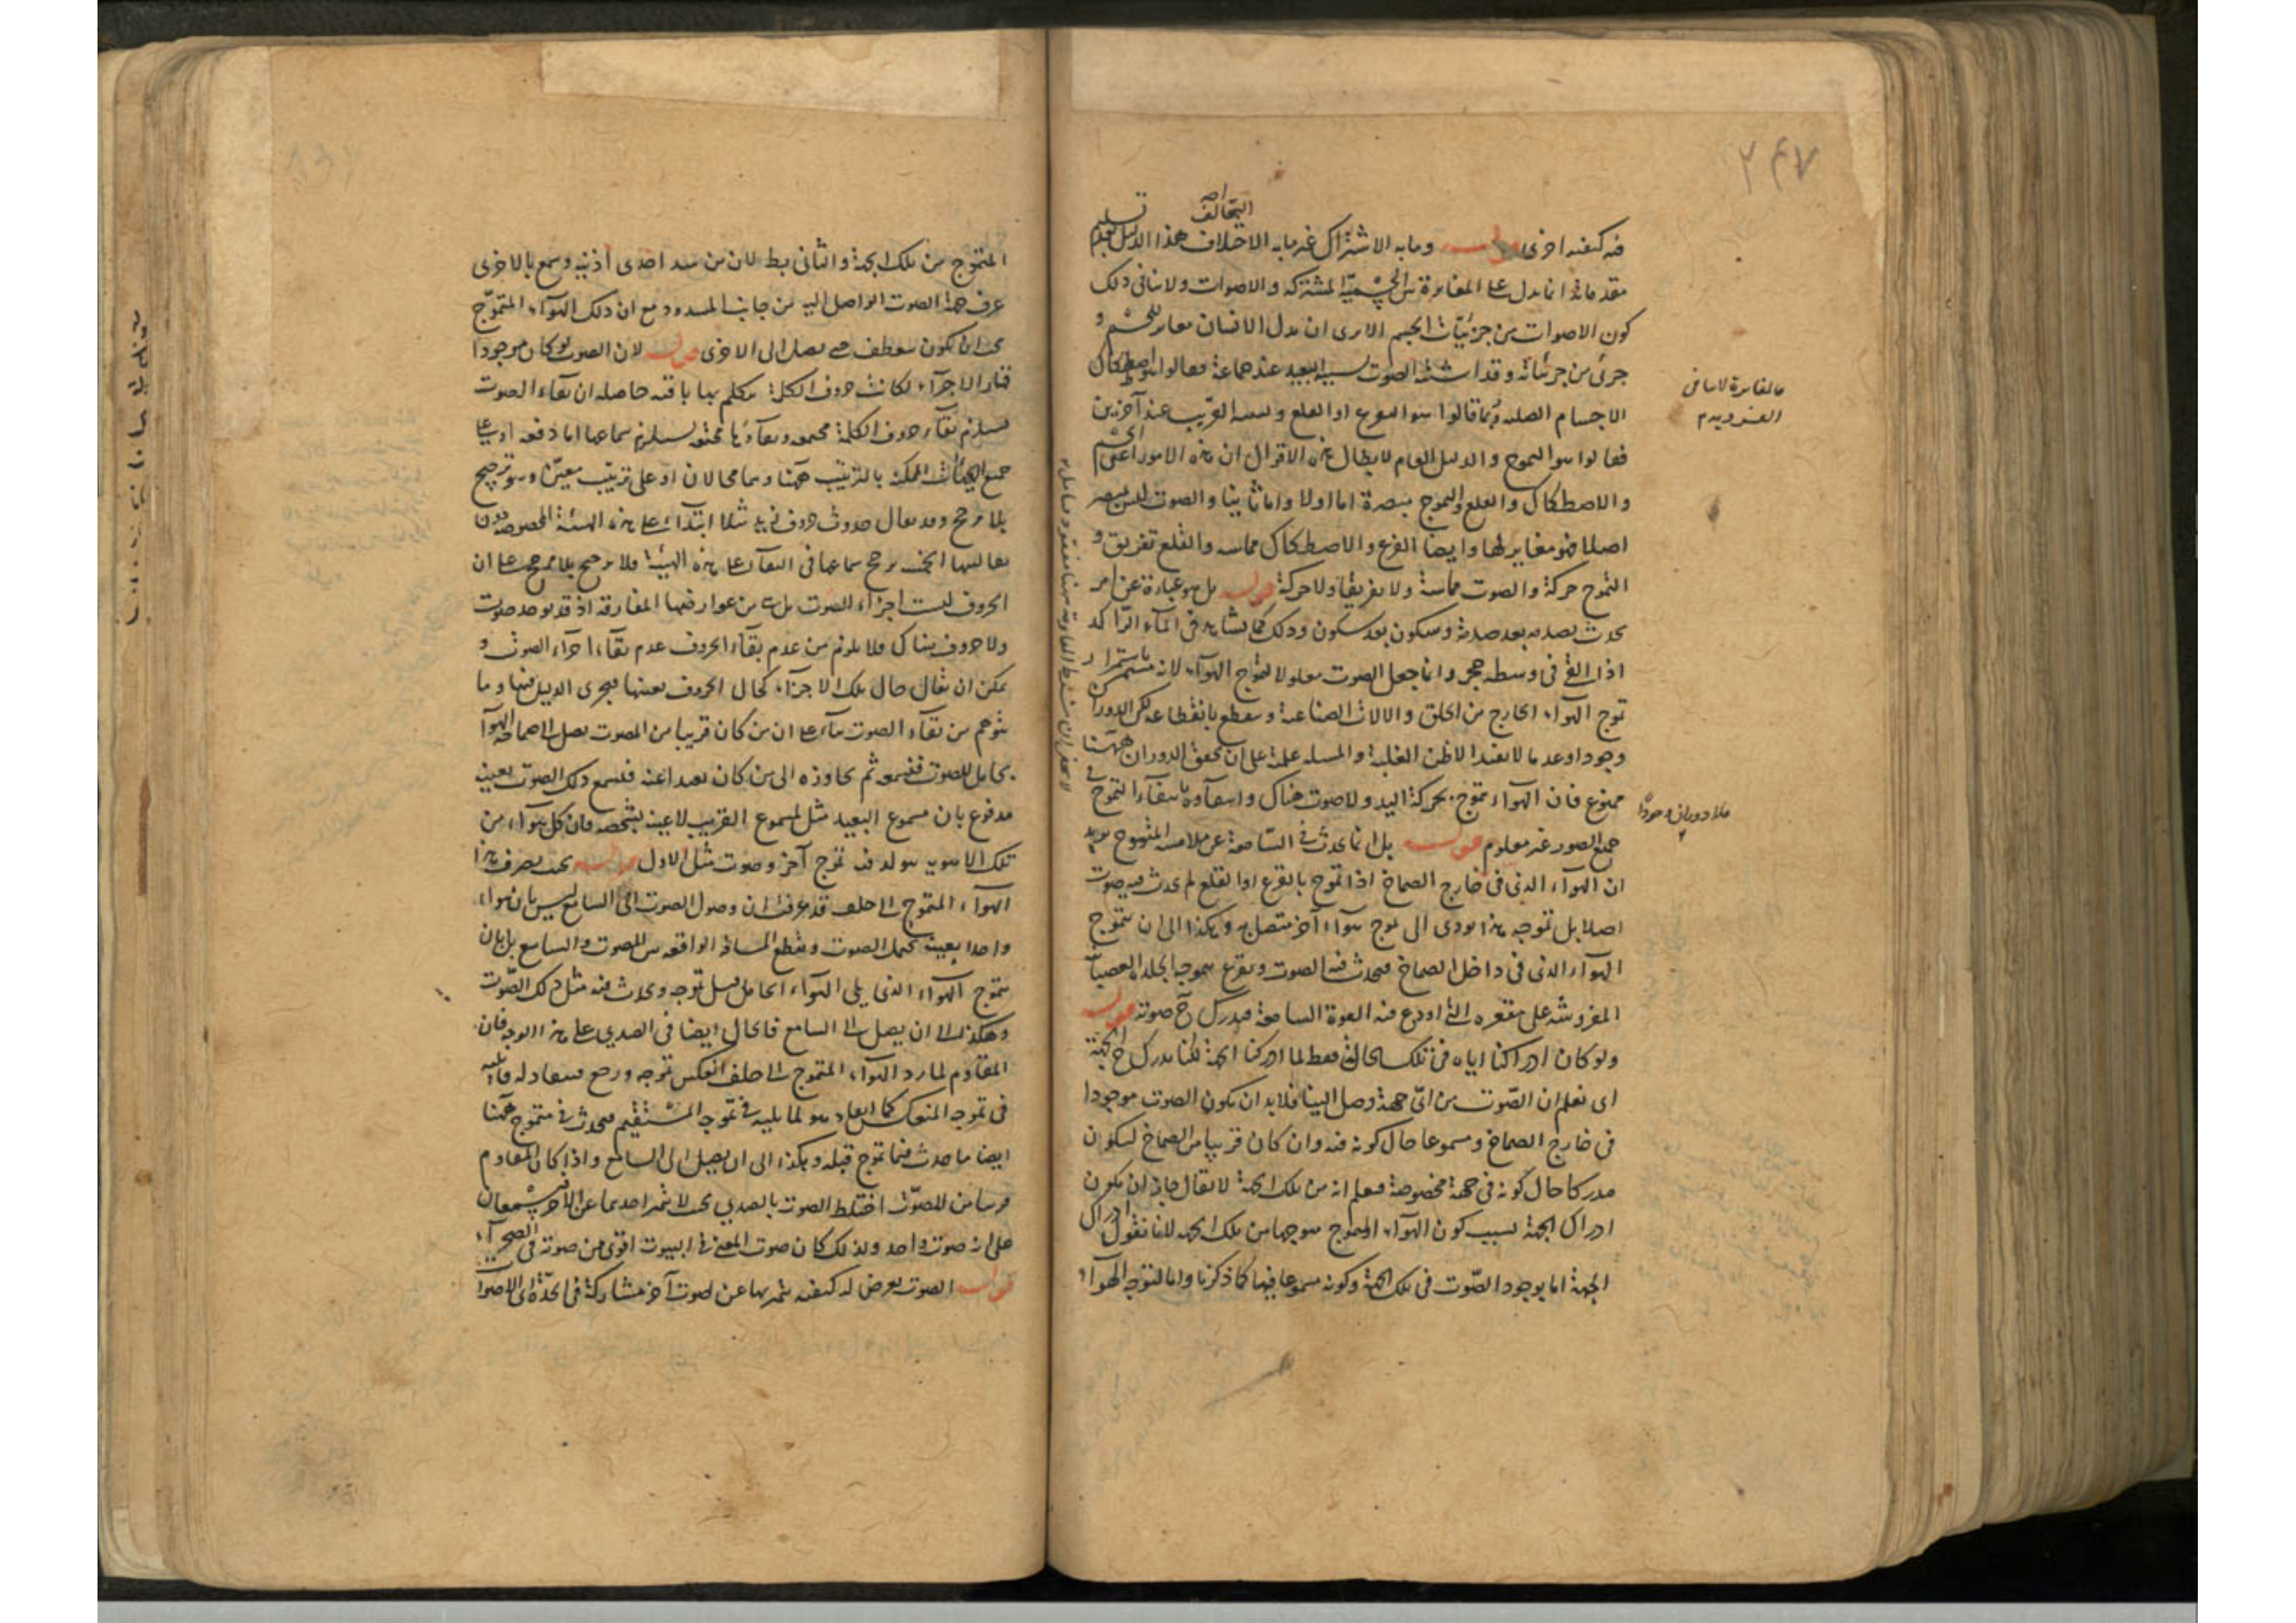 ٢٤٧
التخالف
فيه كيفية اخرى قوله وما به الاشتراك غير ما به الاختلاف هذا الدليل بعد تسليم
مقدماته انما يدل على المغايرة بين الجسمية المشتركة والاصوات ولا ينافى ذلك
كون الاصوات من جزئيات الجسم الا يرى ان بدل الانسان مغاير للجسم و
جزئى من جزئياته وقد اشتبه الصوت بسببه البعيد عند جماعة فقالوا هو اصطكاك
الاجسام الصلبة وربما قالوا هو القرع او القلع وبسببه القريب عند آخرين
فقالوا هو التموج والدليل العام لابطال هذه الاقوال ان هذه الامور اعنى الجسم
والاصطكاك والقلع والتموج مبصرة اما اولا واما ثانيا والصوت ليس يبصر
اصلا فهو مغاير لها وايضا القرع والاصطكاك مماسه والقلع تفريق و
التموج حركة والصوت مماسة ولا تفريقا ولا حركة قوله بل هو عبارة عن امر
يحدث بصدم بعد صدم وسكون بعد سكون وذلك كما نشاهد فى الماء الراكد
اذا القى فى وسطه حجر وانما جعل الصوت معلولا لتموج الهواء لانه مستمر باستمرار
تموج الهواء الخارج من الحلق والالات الصناعية وينقطع بانقطاعه لكن الدوران
وجودا وعدما لا يفيد الا ظن الغلبة والمسئلة علمية على ان تحقق الدوران ههنا
ممنوع فان الهواء يتموج بحركة اليد ولا صوت هناك وانتفاؤه بانتفاء التموج فى
جميع الصور غير معلوم قوله بل انما يحدث فى السامعة عن ملامسة المتموج يريد
ان الهواء الذى فى خارج الصماخ اذا تموج بالقرع او القلع لم يحدث فيه صوت
اصلا بل تموجه هذا يودى الى تموج هواء آخر متصل به وهكذا الى ان يتموج
الهواء الذى فى داخل الصماخ فيحدث فيه الصوت ويقرع بتموجه الجلدة العصبانية
المفروشة على مقعره التى اودع فيه القوة السامعة فيدرك ح صوته قوله
ولو كان ادراكنا اياه فى تلك الحالة فقط لما ادركنا الجهة لكنا ندرك ح الجهة
اى نعلم ان الصوت من اى جهة وصل الينا فلا بد ان يكون الصوت موجودا
فى خارج الصماخ ومسموعا حال كونه فيه وان كان قريبا من الصماخ ليكون
مدركا حال كونه فى جهة مخصوصة فيعلم انه من تلك الجهة لا يقال جاز ان يكون
ادراك الجهة بسبب كون الهواء المتموج متوجها من تلك الجهة لانا نقول ادراك
الجهة اما بوجود الصوت فى تلك الجهة وكونه مسموعا فيها كما ذكرنا واما لتوجه الهواء
فالمغايرة لا تنافى
فلا دوران وجودا
المتموج من تلك الجهة والثانى بط لان من سد احدى اذنيه وسمع بالاخرى
عرف جهة الصوت الواصل اليه من جانب المسدود مع ان ذلك الهواء المتموج
يجب ان يكون ينعطف حتى يصل الى الاخرى قوله لان الصوت لو كان موجودا
قار الاجزاء لكانت حروف الكلمة متكلم بها باقية حاصله ان بقاء الصوت
يستلزم بقاء حروف الكلمة مجتمعة وبقاؤها مجتمعة يستلزم سماعها اما دفعة او على
جميع الهيئات الممكنة بالترتيب ههنا وهما محالان او على ترتيب معين وهو ترجيح
بلا مرجح وقد يقال حدوث حروف زيد مثلا ابتداء على هذه الهيئة المخصوصة دون
تقاليبها الخمسة يرجح سماعها فى البقاء على هذه الهيئة فلا ترجيح بلا مرجح على ان
الحروف ليست اجزاء للصوت بل هى من عوارضها المفارقة اذ قد يوجد صوت
ولا حروف هناك فلا يلزم من عدم بقاء الحروف عدم بقاء اجزاء الصوت و
يمكن ان يقال حال تلك الاجزاء كحال الحروف بعينها فيجرى الدليل فيها وما
يتوهم من بقاء الصوت بناء على ان من كان قريبا من المصوت يصل الى صماخه الهواء
الحامل للصوت فيسمعه ثم يتجاوزه الى من كان بعيدا عنه فيسمع ذلك الصوت بعينه
مدفوع بان مسموع البعيد مثل لمسموع القريب لا عينه بشخصه فان كل هواء من
تلك الاهوية يتولد فيه تموج آخر وصوت مثل الاول قوله بحيث يصرف هذا
الهواء المتموج الى خلف قد عرفت ان وصول الصوت الى السامع ليس بان هواء
واحدا بعينه يحمل الصوت ويقطع المسافة الواقعة بين المصوت والسامع بل بان
يتموج الهواء الذى يلى الهواء الحامل مثل تموجه ويحدث فيه مثل ذلك الصوت
وهكذا الى ان يصل الى السامع فالحال ايضا فى الصدى على هذا الوجه فان
المقاوم لما رد الهواء المتموج الى خلف انعكس تموجه ورجع
فى تموجه المنعكس كما افاد هو لما يليه فى تموجه المستقيم فيحدث فى متموج ههنا
ايضا ما حدث فيما تموج قبله وهكذا الى ان يصل الى السامع واذا كان المقاوم
قريبا من المصوت اختلط الصوت بالصدى بحيث لا يتميز احدهما عن الآخر فيسمعان
على انه صوت واحد ولذلك كان صوت المغنى فى البيوت اقوى من صوته فى الصحراء
قوله الصوت يعرض له كيفية يتميز بها عن صوت آخر مشاركة فى الحدة اى الاصوات